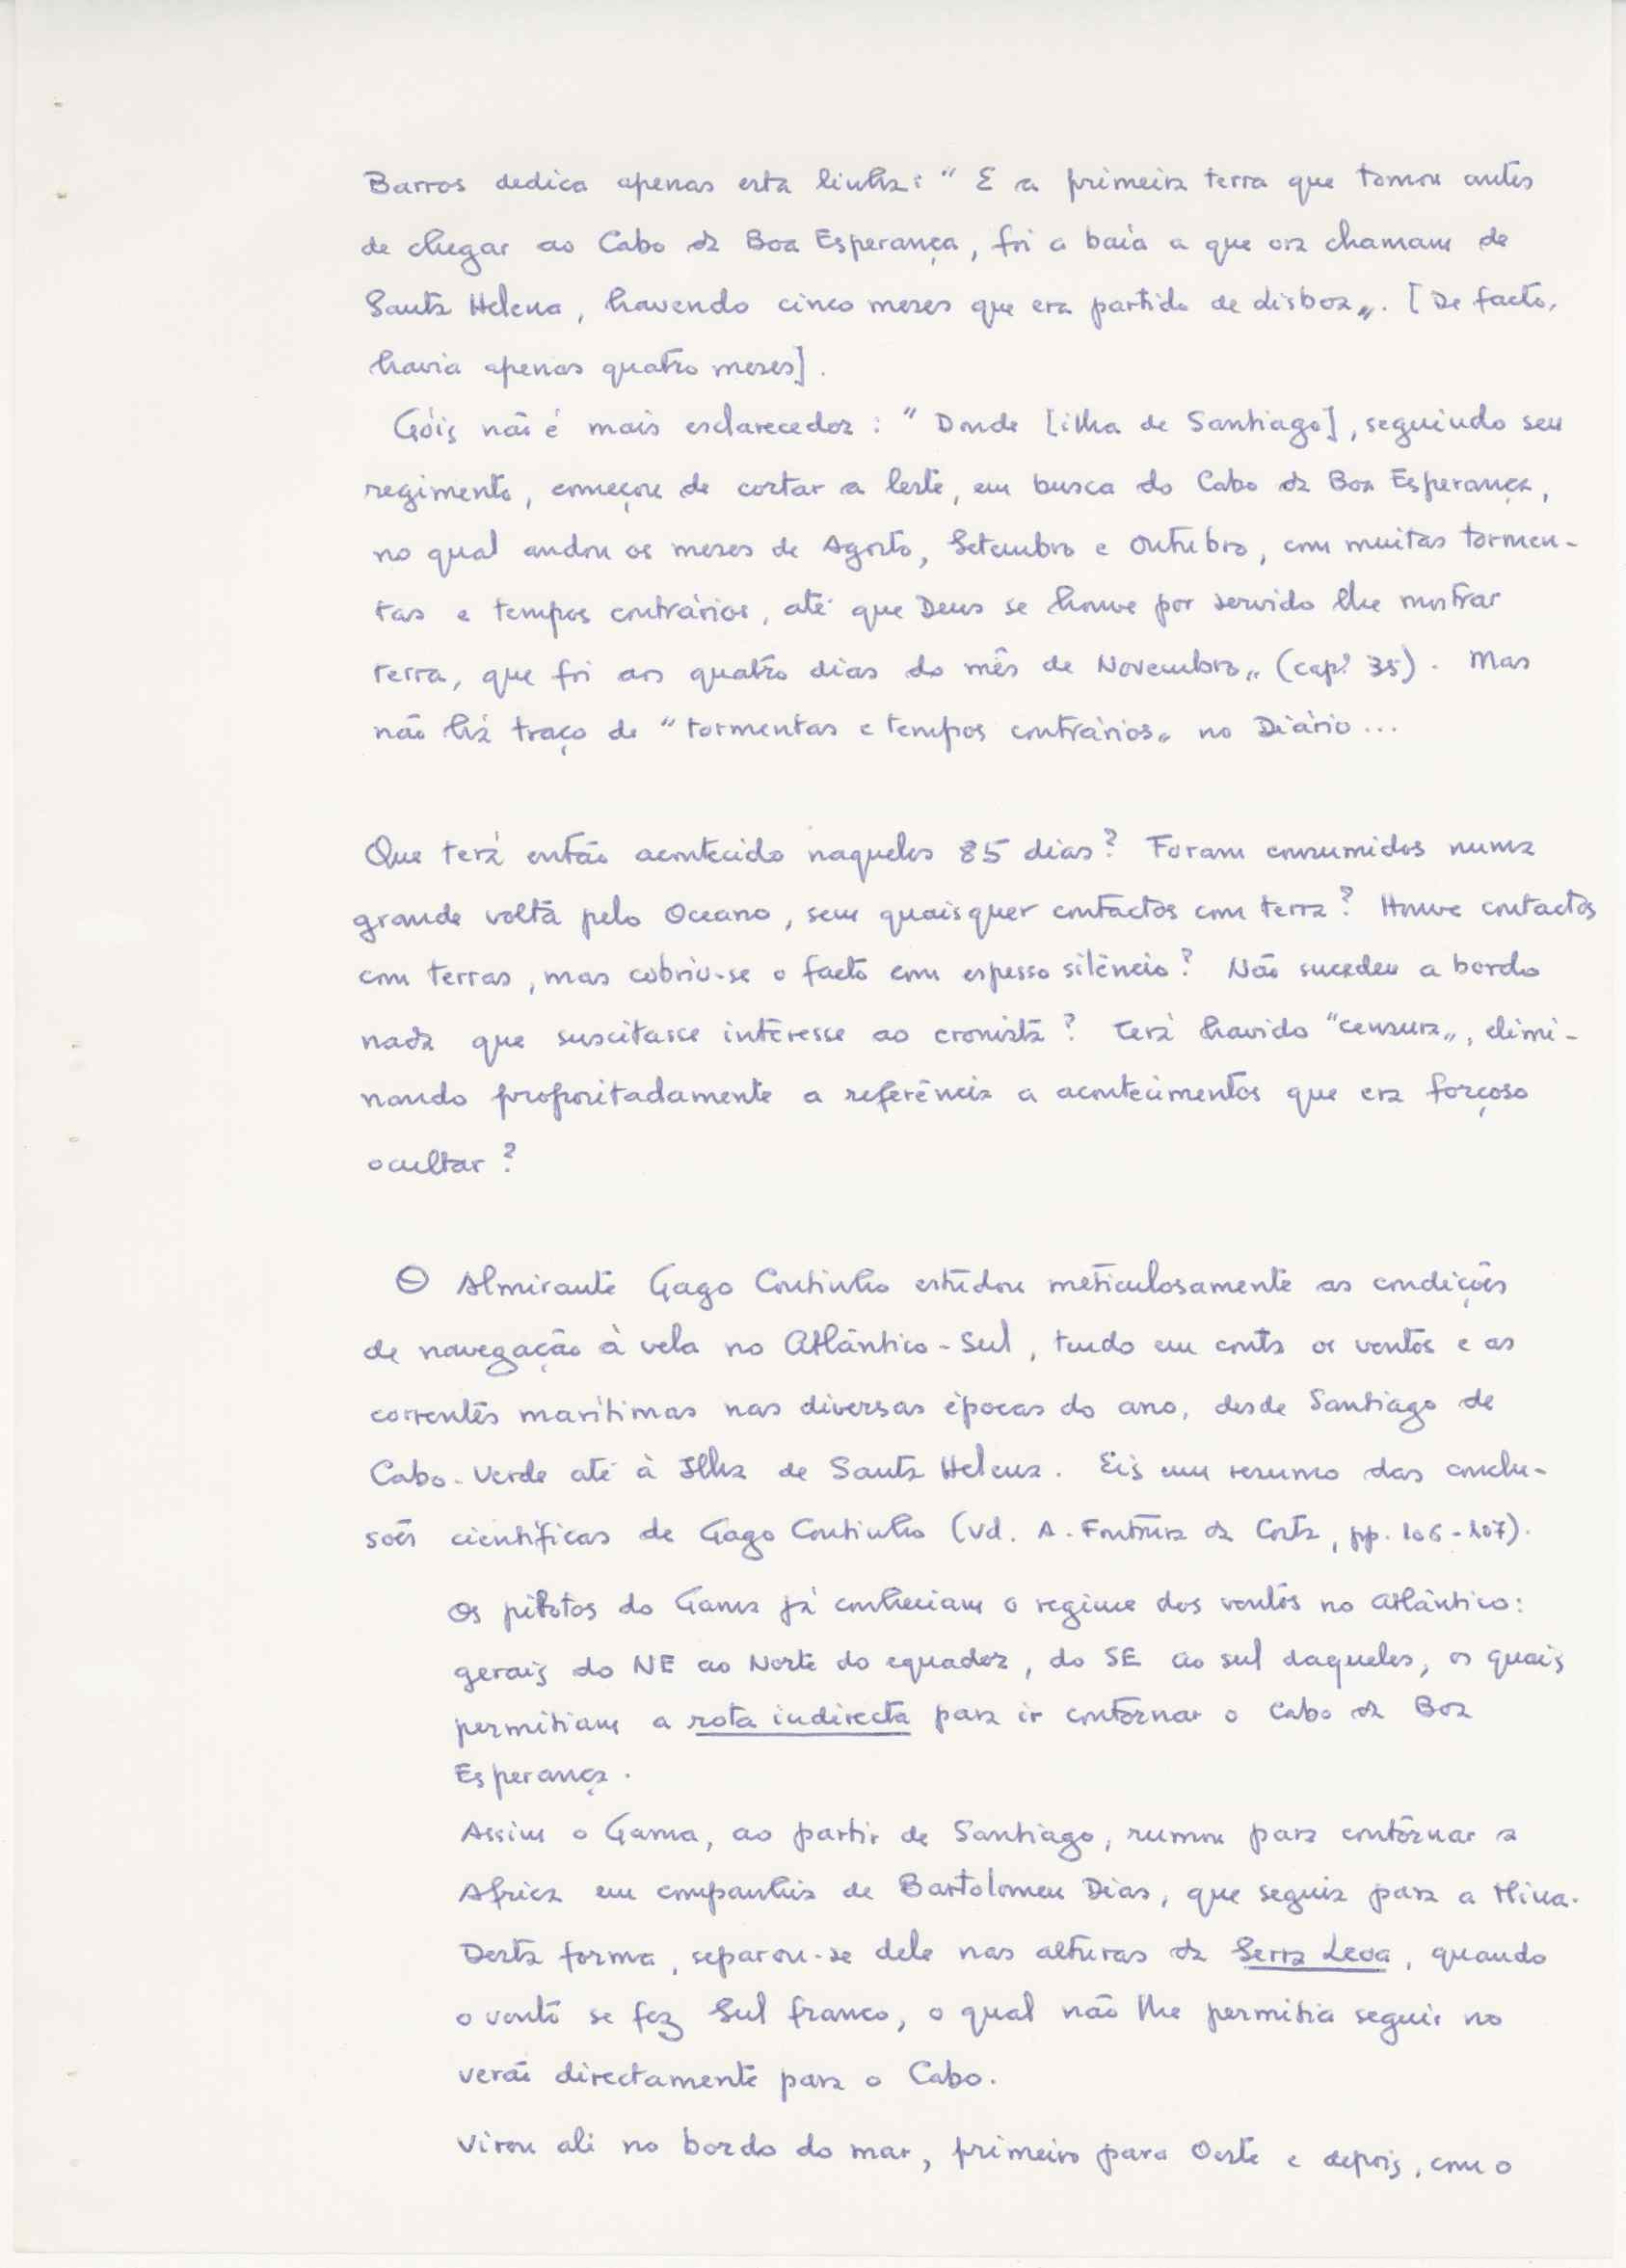 Barros dedica apenas esta linha: " E a primeira terra que tomou antes
de chegar ao Cabo da Boa Esperança, foi a baía a que ora chamam de
Santa Helena, havendo cinco meses que era partido de Lisboa„. [De facto,
havia apenas quatro meses].
Góis não é mais esclarecedor: " Donde [ilha de Santiago], seguindo seu
regimento, começou de cortar a leste, em busca do Cabo da Boa Esperança,
no qual andou os meses de Agosto, Setembro e Outubro, com muitas tormen-
tas e tempos contrários, até que Deus se houve por servido lhe mostrar
terra, que foi aos quatro dias do mês de Novembro„ (cap.º 35). Mas
não há traço de " tormentas e tempos contrários„ no Diário ...
Que terá então acontecido naqueles 85 dias? Foram consumidos numa
grande volta pelo Oceano, sem quaisquer contactos com terra? Houve contactos
com terras, mas cobriu-se o facto com espesso silêncio? Não sucedeu a bordo
nada que suscitasse interesse ao cronista? Terá havido "censura„, elimi-
nando propositadamente a referência a acontecimentos que era forçoso
ocultar?
O Almirante Gago Coutinho estudou meticulosamente as condições
de navegação à vela no Atlântico-Sul, tendo em conta os ventos e as
correntes marítimas nas diversas épocas do ano, desde Santiago de
Cabo-Verde até à Ilha de Santa Helena. Eis um resumo das conclu-
sões científicas de Gago Coutinho (vd. A. Fontoura da Costa, pp. 106-107).
Os pilotos do Gama já conheciam o regime dos ventos no Atlântico:
gerais do NE ao Norte do equador, do SE ao sul daqueles, os quais
permitiam a rota indirecta para ir contornar o Cabo da Boa
Esperança.
Assim o Gama, ao partir de Santiago, rumou para contornar a
Africa em companhia de Bartolomeu Dias, que seguia para a Mina.
Desta forma, separou-se dele nas alturas da Serra Leoa, quando
o vento se fez Sul franco, o qual não lhe permitia seguir no
verão directamente para o Cabo.
Virou ali no bordo do mar, primeiro para Oeste e depois, com o